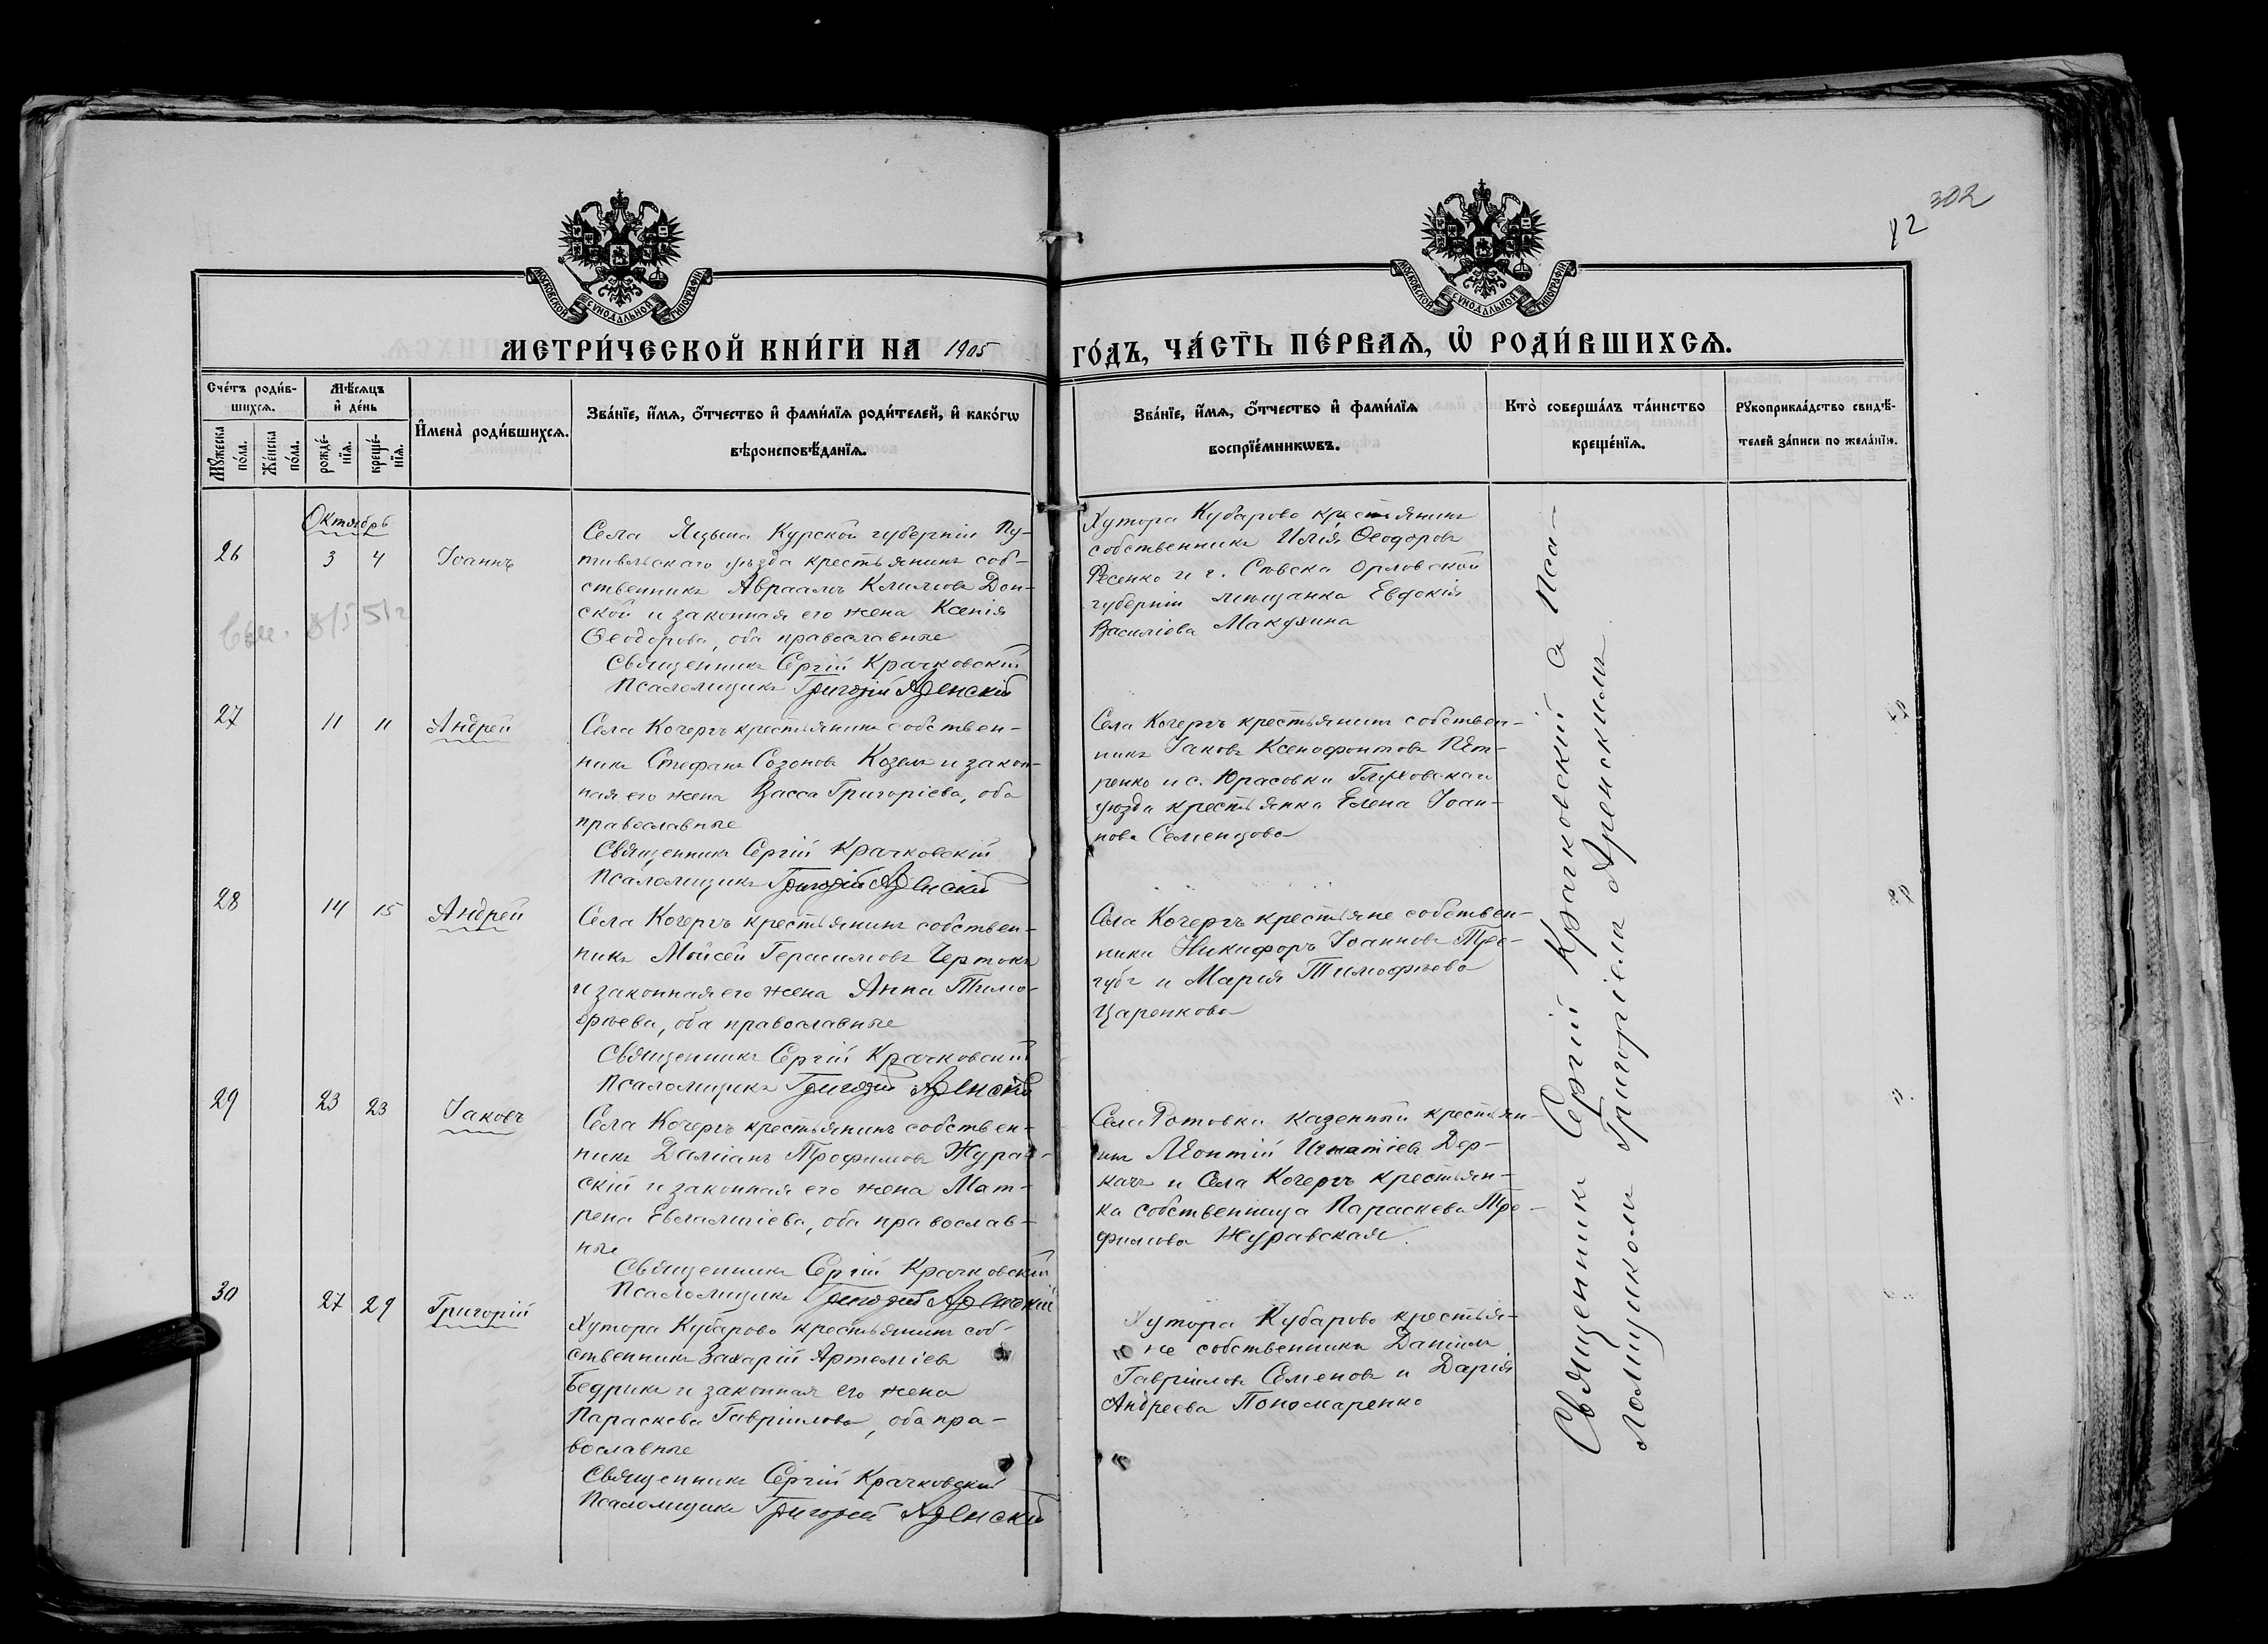 302
12
МОСКОВСКОЙ СѴНОДАЛЬНОЙ ТИПОГРАФІИ
МОСКОВСКОЙ СѴНОДАЛЬНОЙ ТИПОГРАФІИ
МЕТРИ́ЧЕСКОЙ КНИ́ГИ НА 1905
ГО́ДЪ, ЧА́СТЬ ПЕ́РВАѦ, Ѡ҆ РОДИ́ВШИХСѦ.
Сче́тъ роди́в-
шихсѧ.
Мꙋ́жеска по́ла.
Же́нска по́ла.
Мѣ́сѧцъ
и҆ де́нь
рожде́-
нїѧ.
креще́-
нїѧ.
И҆мена̀ роди́вшихсѧ.
Зва́нїе, и҆́мѧ, о҆́тчество и҆ фами́лїѧ роди́телей, и҆ како́гѡ
вѣроисповѣ́данїѧ.
Зва́нїе, и҆́мѧ, о҆́тчество и҆ фами́лїѧ
воспрїе́мникѡвъ.
Кто̀ соверша́лъ та́инство
креще́нїѧ.
Рꙋкоприкла́дство свидѣ́-
телей за́писи по жела́нїю.
Октябрь
26
3 4
Іоаннъ
Села Яцына Курской губерніи Пу-
тивльскаго уѣзда крестьянинъ соб-
ственникъ Авраамъ Климовъ Дон-
ской и законная его жена Ксенія
Ѳеодорова, оба православные
Священникъ Сергій Крачковскій
Псаломщикъ Григорій Аренскій
Хутора Кубарова крестьянинъ
собственникъ Илія Ѳеодоровъ
Фесенко и г. Сѣвска Орловской
губерніи мѣщанка Евдокія
Василіева Макухина
27
11 11
Андрей
Села Кочергъ крестьянинъ собствен-
никъ Стефанъ Созоновъ Козелъ и закон-
ная его жена Васса Григоріева, оба
православные
Священникъ Сергій Крачковскій
Псаломщикъ Григорій Аренскій
Села Кочергъ крестьянинъ собствен-
никъ Іаковъ Ксенофонтовъ Пет-
ренко и с. Юрасовки Глуховскаго
уѣзда крестьянка Елена Іоан-
нова Семенцова
28
14 15
Андрей
Села Кочергъ крестьянинъ собствен-
никъ Мойсей Герасимовъ Чертокъ
и законная его жена Анна Тимо-
фѣева, оба православные
Священникъ Сергій Крачковскій
Псаломщикъ Григорій Аренскій
Села Кочергъ крестьяне собствен-
ники Никифоръ Іоанновъ Трегубъ и Марія Тимофѣева
Царенкова
29
23 23
Іаковъ
Села Кочергъ крестьянинъ собствен-
никъ Даміанъ Трофимовъ Журав-
скій и законная его жена Мат-
рена Евлампіева, оба православ-
ные
Священникъ Сергій Крачковскій
Псаломщикъ Григорій Аренскій
Села Ротовки казенный крестьян-
инъ Леонтій Игнатіевъ Дер-
качъ и Села Кочергъ крестьян-
ка собственница Параскева Тро-
фимова Журавская.
30
27 29
Григорій
Хутора Кубарова крестьянинъ соб-
ственникъ Захарій Артеміевъ
Бедрикъ и законная его жена
Параскева Гавріилова, оба пра-
вославные
Священникъ Сергій Крачковскій
Псаломщикъ Григорій Аренскій
Хутора Кубарова крестья-
не собственники Даніилъ
Гавріиловъ Семеновъ и Дарія
Андреева Пономаренко
Священникъ Сергій Крачковскій съ Пса-
ломщикомъ Григоріемъ Аренскимъ